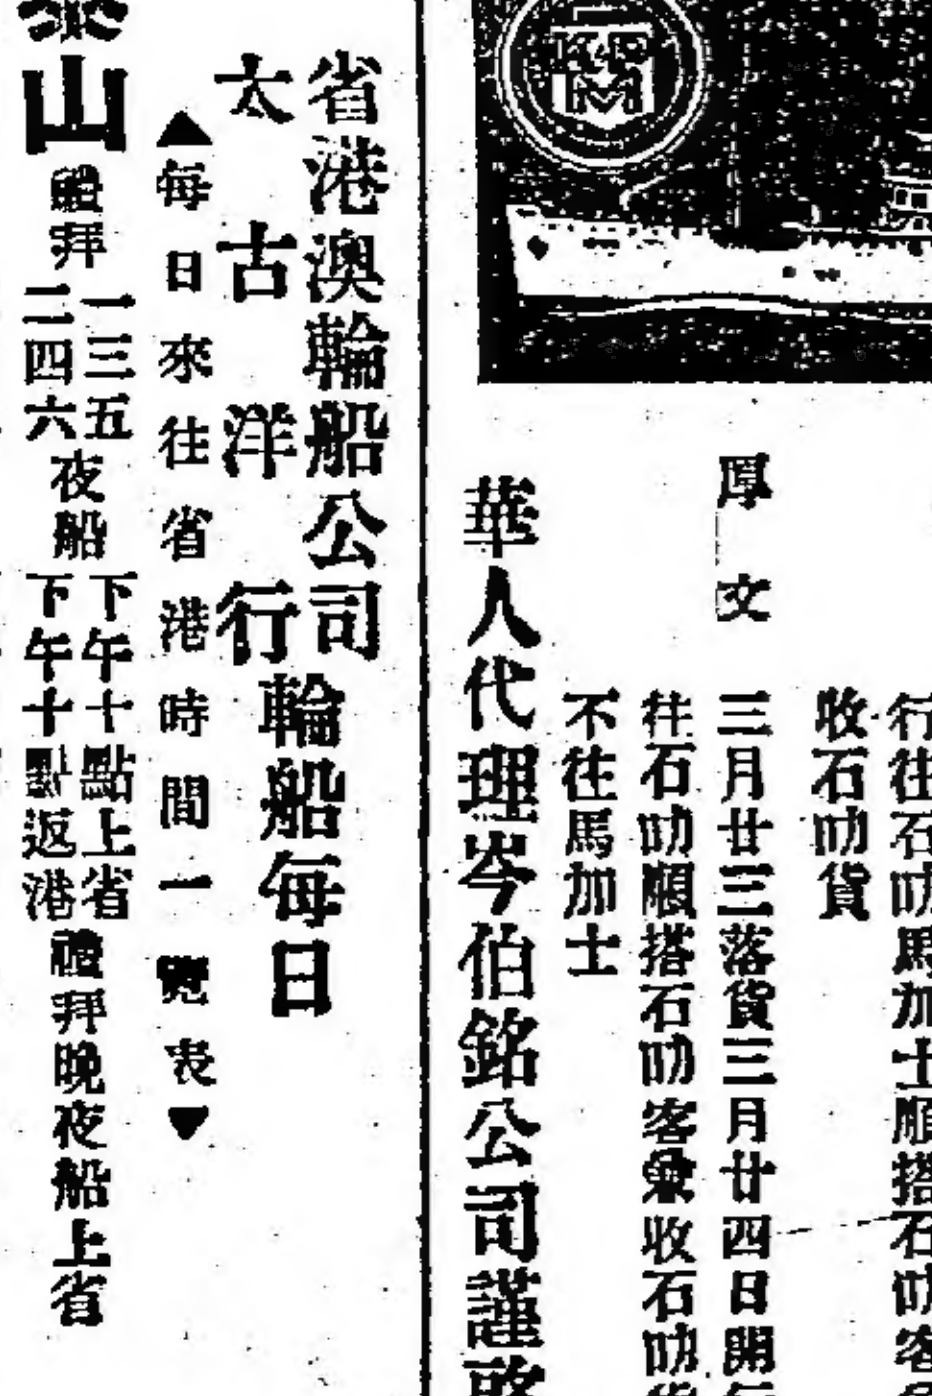 行往石叻馬加士順搭石叻客
收石叻貨
厚文
三月廿三落貨三月廿四日開
往石叻順搭石叻客兼收石叻
不往馬加士
華人代理岑伯銘公司謹啓
省港澳輪船公司
太古洋行
輪船每日
▲每日來往省港時間一覽表▼
泰山
禮拜
一三五
二四六
夜船
下午十點上省
下午十點返港
禮拜晚夜船上省